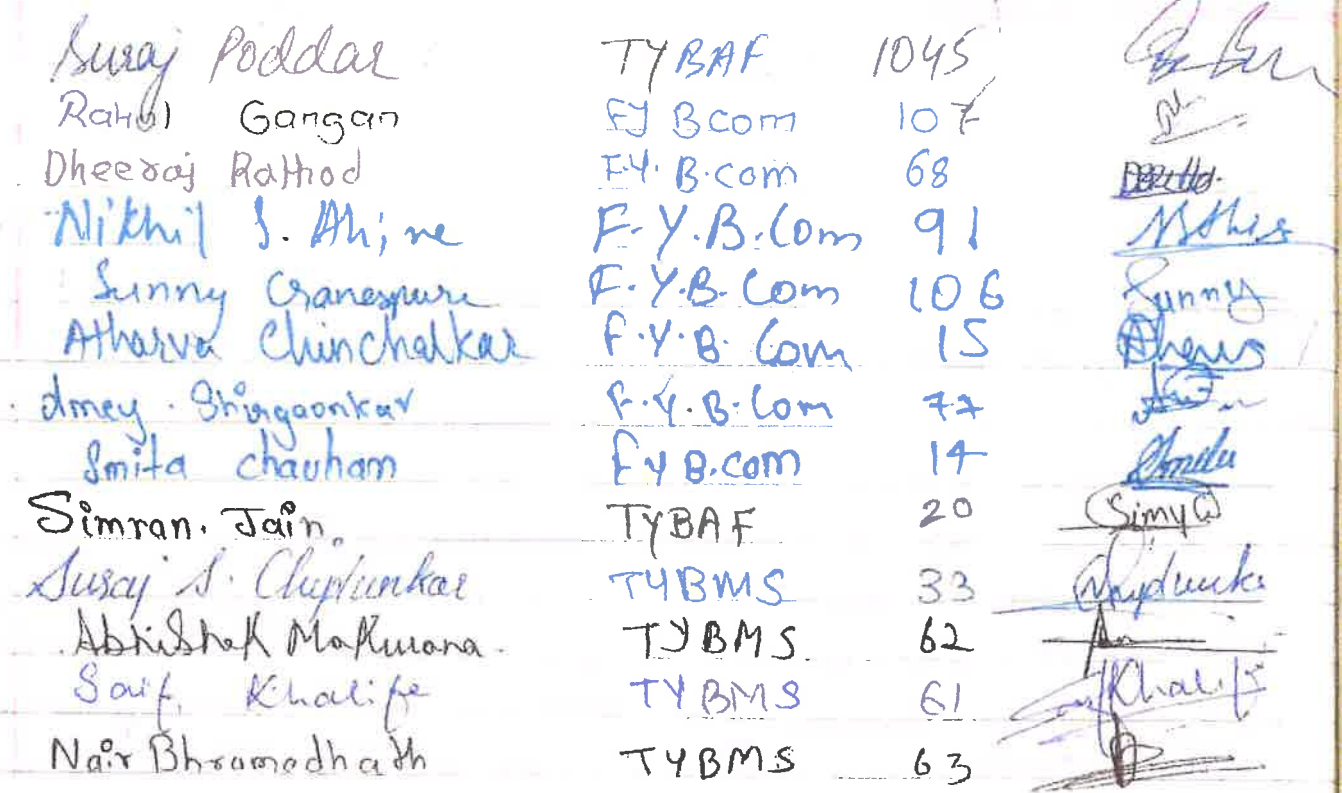 Suraj Poddar TYBAF 1045
Rahul Gangan FY Bcom 107
Dheeraj Rathod F.Y. B.com 68
Nikhil S. Ahire F.Y.B.Com 91
Sunny Ganespure F.Y.B.Com 106 Sunny
Atharva Chinchalkar F.Y.B.Com 15
Amey Shirgaonkar F.Y.B.Com 77
Smita chauham FyB.com 14
Simran. Jain. TYBAF 20 Simy
Suraj S. Chiplunkar TYBMS 33
Abhishek Makwana. TYBMS 62
Saif Khalife TYBMS 61 Khalife
Nair Bhramadhath TYBMS 63